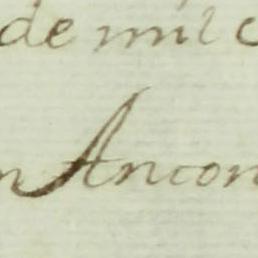 de mil c
n Ancon